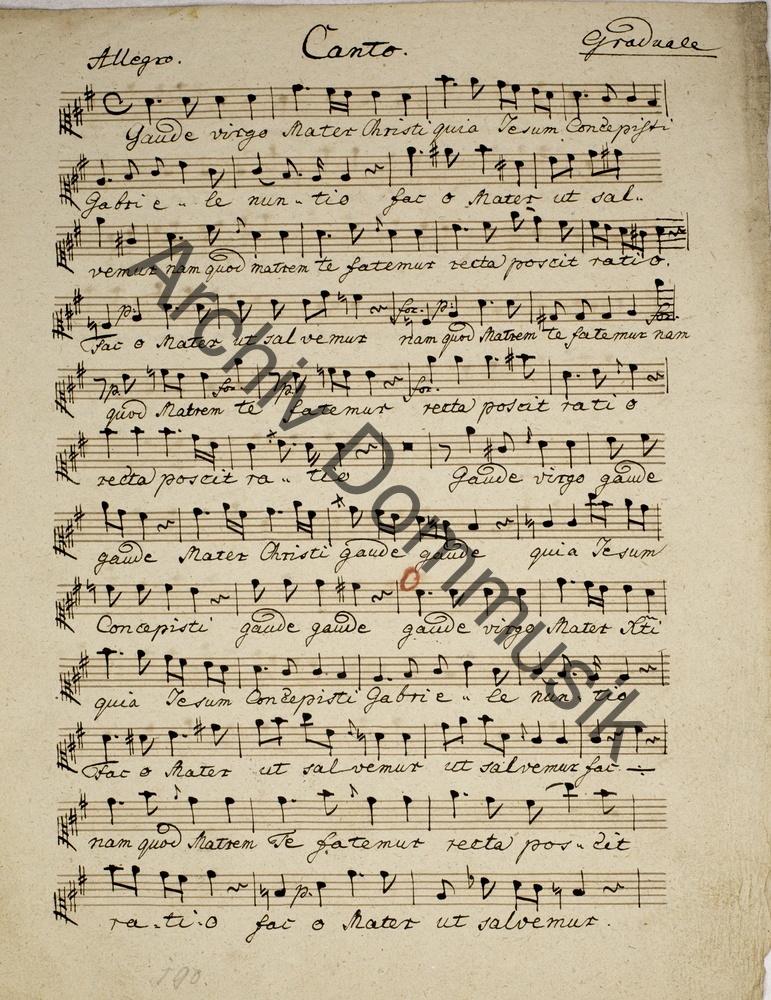 Allegro. Canto. Graduale
Gaude virgo Mater Christi quia Jesum Concepisti
Gabrie .. le nun .. tio fac o Mater ut sal..
vemur nam quod matrem te fatemur recta poscit ratio.
p. for. p. for.
fac o Mater ut salvemur nam quod Matrem te fatemur nam
p. for. p. for.
quod Matrem te fatemur recta poscit ratio
recta poscit ra .. tio Gaude virgo gaude
gaude Mater Christi gaude gaude quia Jesum
Concepisti gaude gaude gaude virgo Mater Xti
quia Jesum Concepisti Gabrie .. le nun .. tio
fac o Mater ut salvemur ut salvemur fac
nam quod Matrem Te fatemur recta pos .. cit
p.
ra . ti . o fac o Mater ut salvemur.
190.
Archiv Dommusik